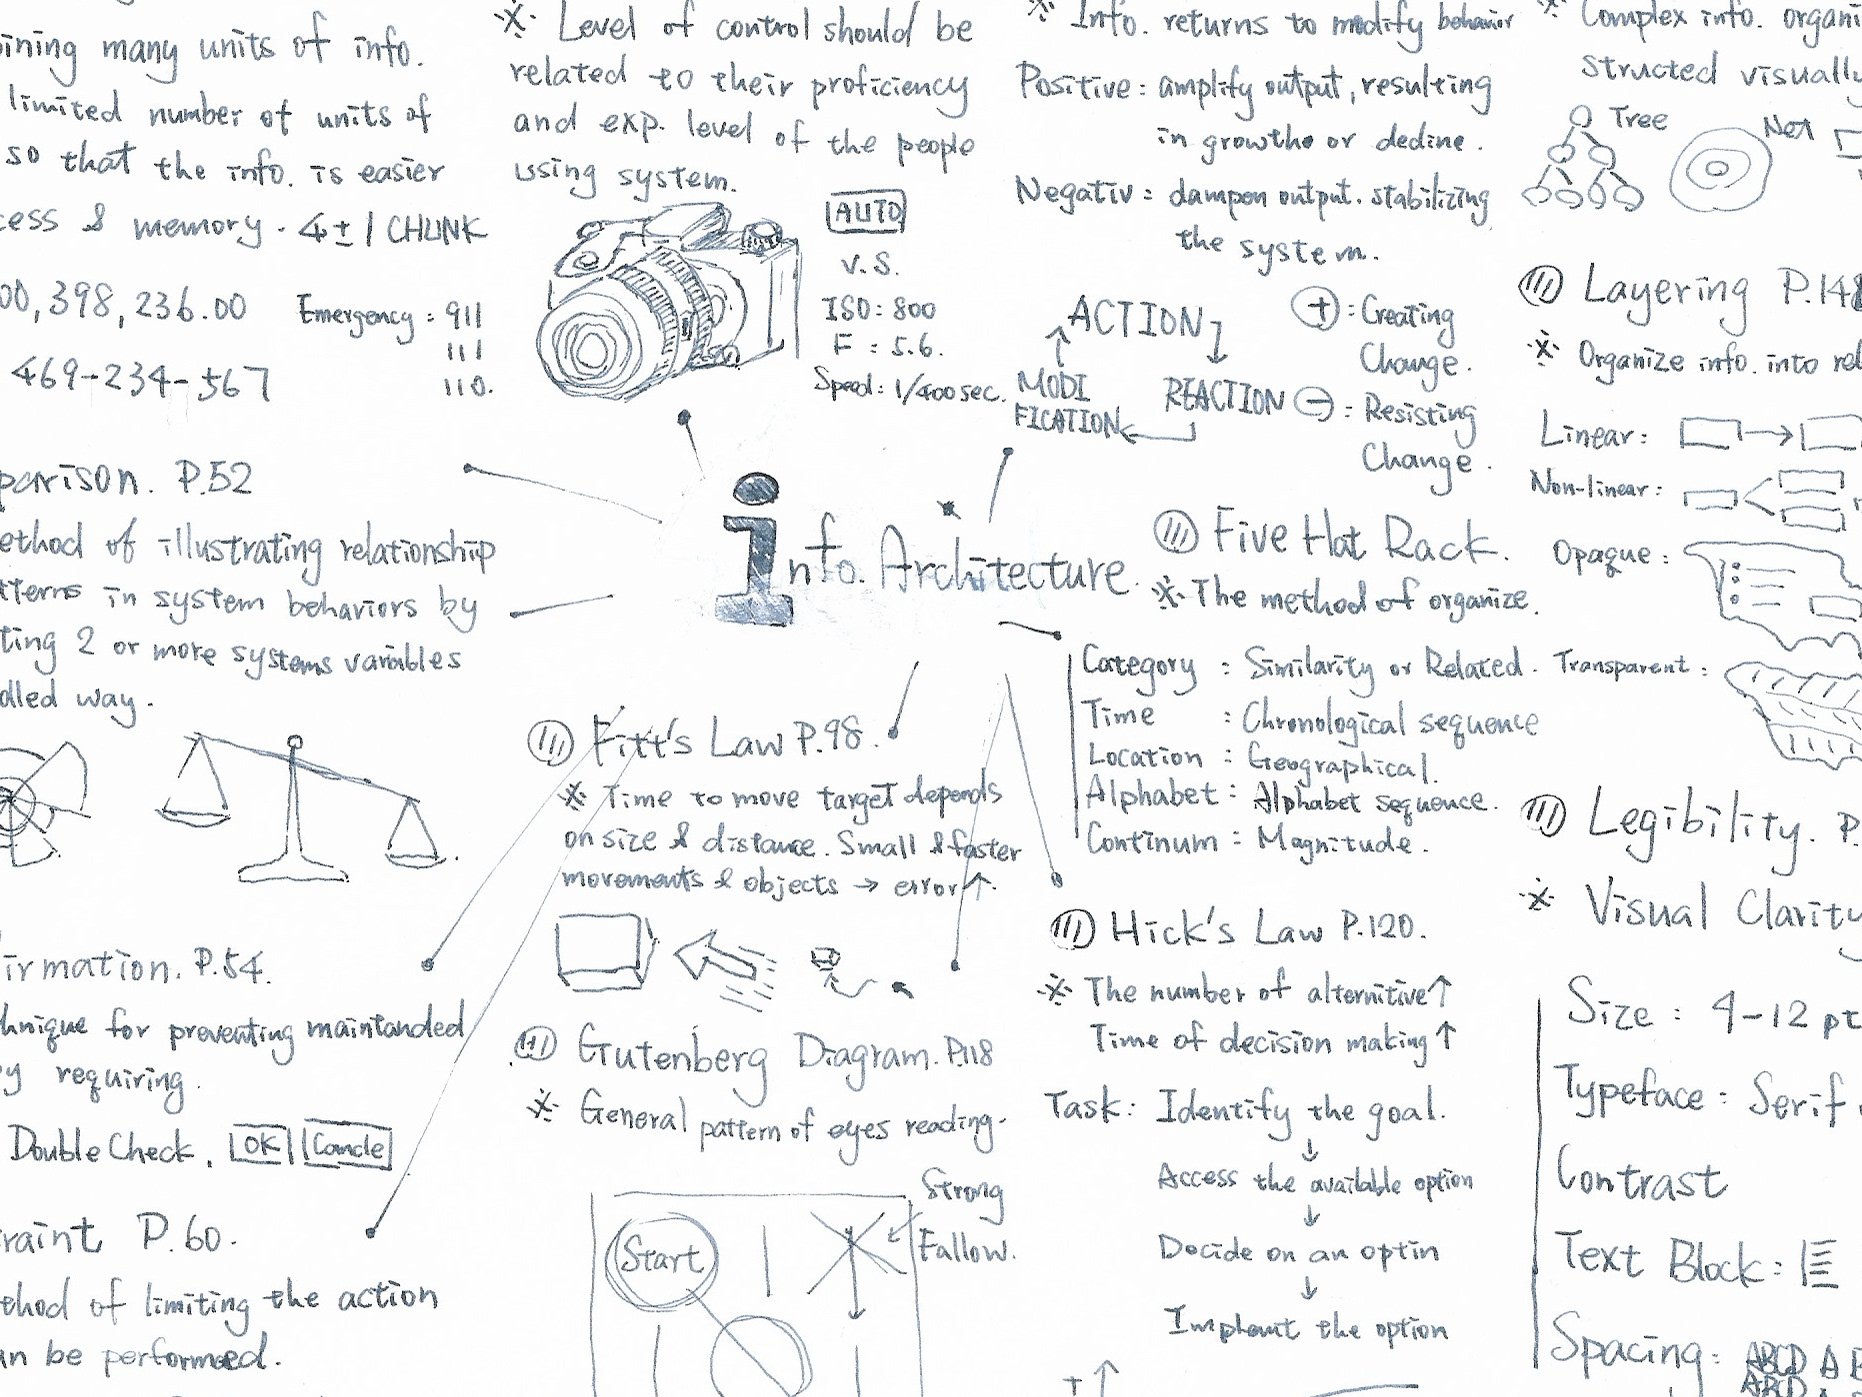 ining many units of info.
limited number of units of
so that the info. is easier
cess & memory. 4±1 CHUNK
00,398,236.00
Emergency: 911
111
110.
469-234-567
parison. P.52
ethod of illustrating relationship
tterns in system behaviors by
ting 2 or more systems variables
olled way.
irmation. P.54.
hnique for preventing maintanded
y requiring.
Double Check. OK Cancle
raint P.60.
ethod of limiting the action
an be performed.
Level of control should be
related to their proficiency
and exp. level of the people
using system.
AUTO
v.s.
ISO: 800
F: 5.6.
Speed: 1/400 sec.
info. Architecture.
Fitt's Law P.98.
Time to move target depends
on size & distance. Small & faster
movements & objects → error ↑.
Gutenberg Diagram. P.118
General pattern of eyes reading.
Start
Strong
Fallow.
Info. returns to modify behavior
Positive: amplify output, resulting
in growthe or decline.
Negativ: dampen output. stabilizing
the system.
ACTION
REACTION
MODI
FICATION
+: Creating
Change.
-: Resisting
Change.
Five Hat Rack.
The method of organize.
Category: Similarity or Related.
Time: Chronological sequence
Location: Geographical.
Alphabet: Alphabet sequence.
Continum: Magnitude.
Hick's Law P.120.
The number of alternitive ↑
Time of decision making ↑
Task: Identify the goal.
↓
Access the available option
↓
Decide on an optin
↓
the option
+ ↑
Complex info. organi
structed visually
Tree
Net
Layering P.148
Organize info. into rel
Linear:
Non-linear:
Opaque:
Transparent:
Legibility. P.
Visual Clarity
Size: 4-12 pt
Typeface: Serif
Contrast
Text Block:
Spacing: ABCD A B
ABCD